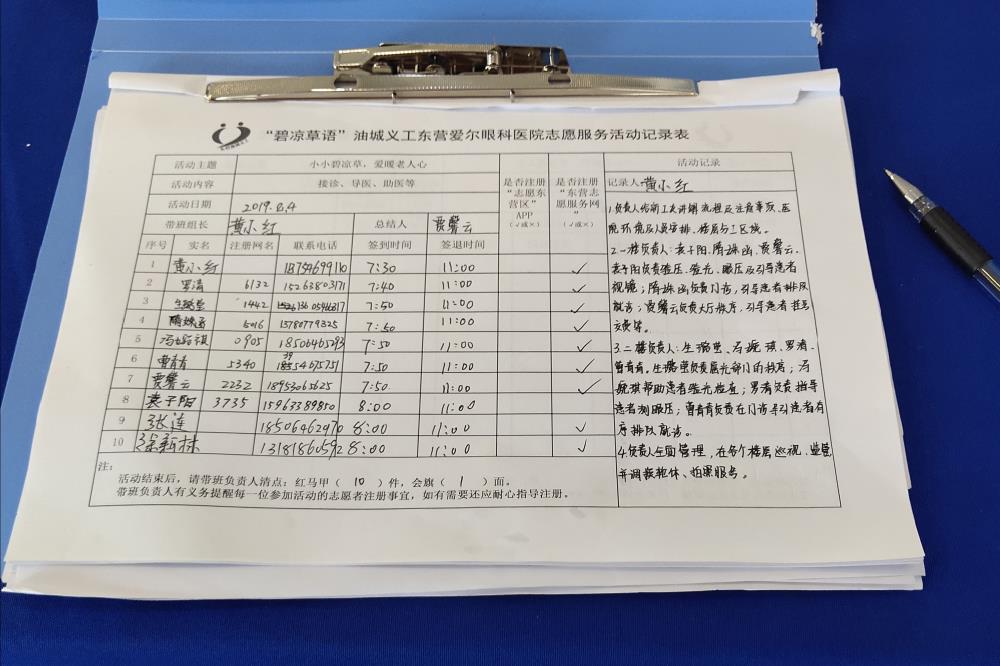 “碧凉草语”油城义工东营爱尔眼科医院志愿服务活动记录表
活动主题 小小碧凉草，爱暖老人心
活动内容 接诊、导医、助医等
活动日期 2019.8.4
带班组长 黄小红 总结人 贾馨云
是否注册“志愿东营区”APP（√或×）
是否注册“东营志愿服务网”（√或×）
序号 实名 注册网名 联系电话 签到时间 签退时间
1 黄小红 18754699110 7:30 11:00 √
2 罗清 6132 15263803171 7:40 11:00 √
3 1442 05466317 7:50 11:00 √
4 隋姝函 5016 15780779325 7:50 11:00 √
5 冯 祺 0905 18506465293 7:50 11:00 √
6 曹青青 5340 7:50 11:00 √
7 贾馨云 2232 18953065625 7:50 11:00 √
8 袁子阳 3735 15963389850 8:00 11:00
9 张连 18506462470 8:00 11:00 √
10 13181860592 8:00 11:00 √
注：
活动结束后，请带班负责人清点：红马甲（ 10 ）件，会旗（ 1 ）面。
带班负责人有义务提醒每一位参加活动的志愿者注册事宜，如有需要还应耐心指导注册。
活动记录
记录人 黄小红
1.负责人给义工先讲解流程及注意事项、医
院环境及人员安排、楼层分工区域。
2.一楼负责人：袁子阳、隋姝函、贾馨云。
袁子阳负责验光、眼压及引导患者
视镜；隋姝函负责门诊，引导患者排队
就诊；贾馨云负责大厅秩序，引导患者挂号
交费等。
3.二楼负责人：生 冯 琪、罗清、
曹青青。负责屈光部门的秩序；冯
琪帮助患者验光检查；罗清负责指导
患者测眼压；曹青青负责在门诊引导患者有
序排队就诊。
4.负责人全面管理，在各个楼层巡视、监管
并调 拍照服务。